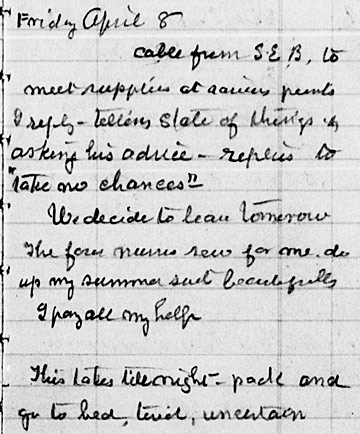 Friday April 8
cable from S.E.B, to
meet supplies at various points
I reply - telling State of things &
asking his advice - replies to
"take no chances"
We decide to leave tomorrow
The four nurses sew for me. do
up my summer suit beautifully
I pay all my help
This takes till night - pack and
go to bed, tired, uncertain